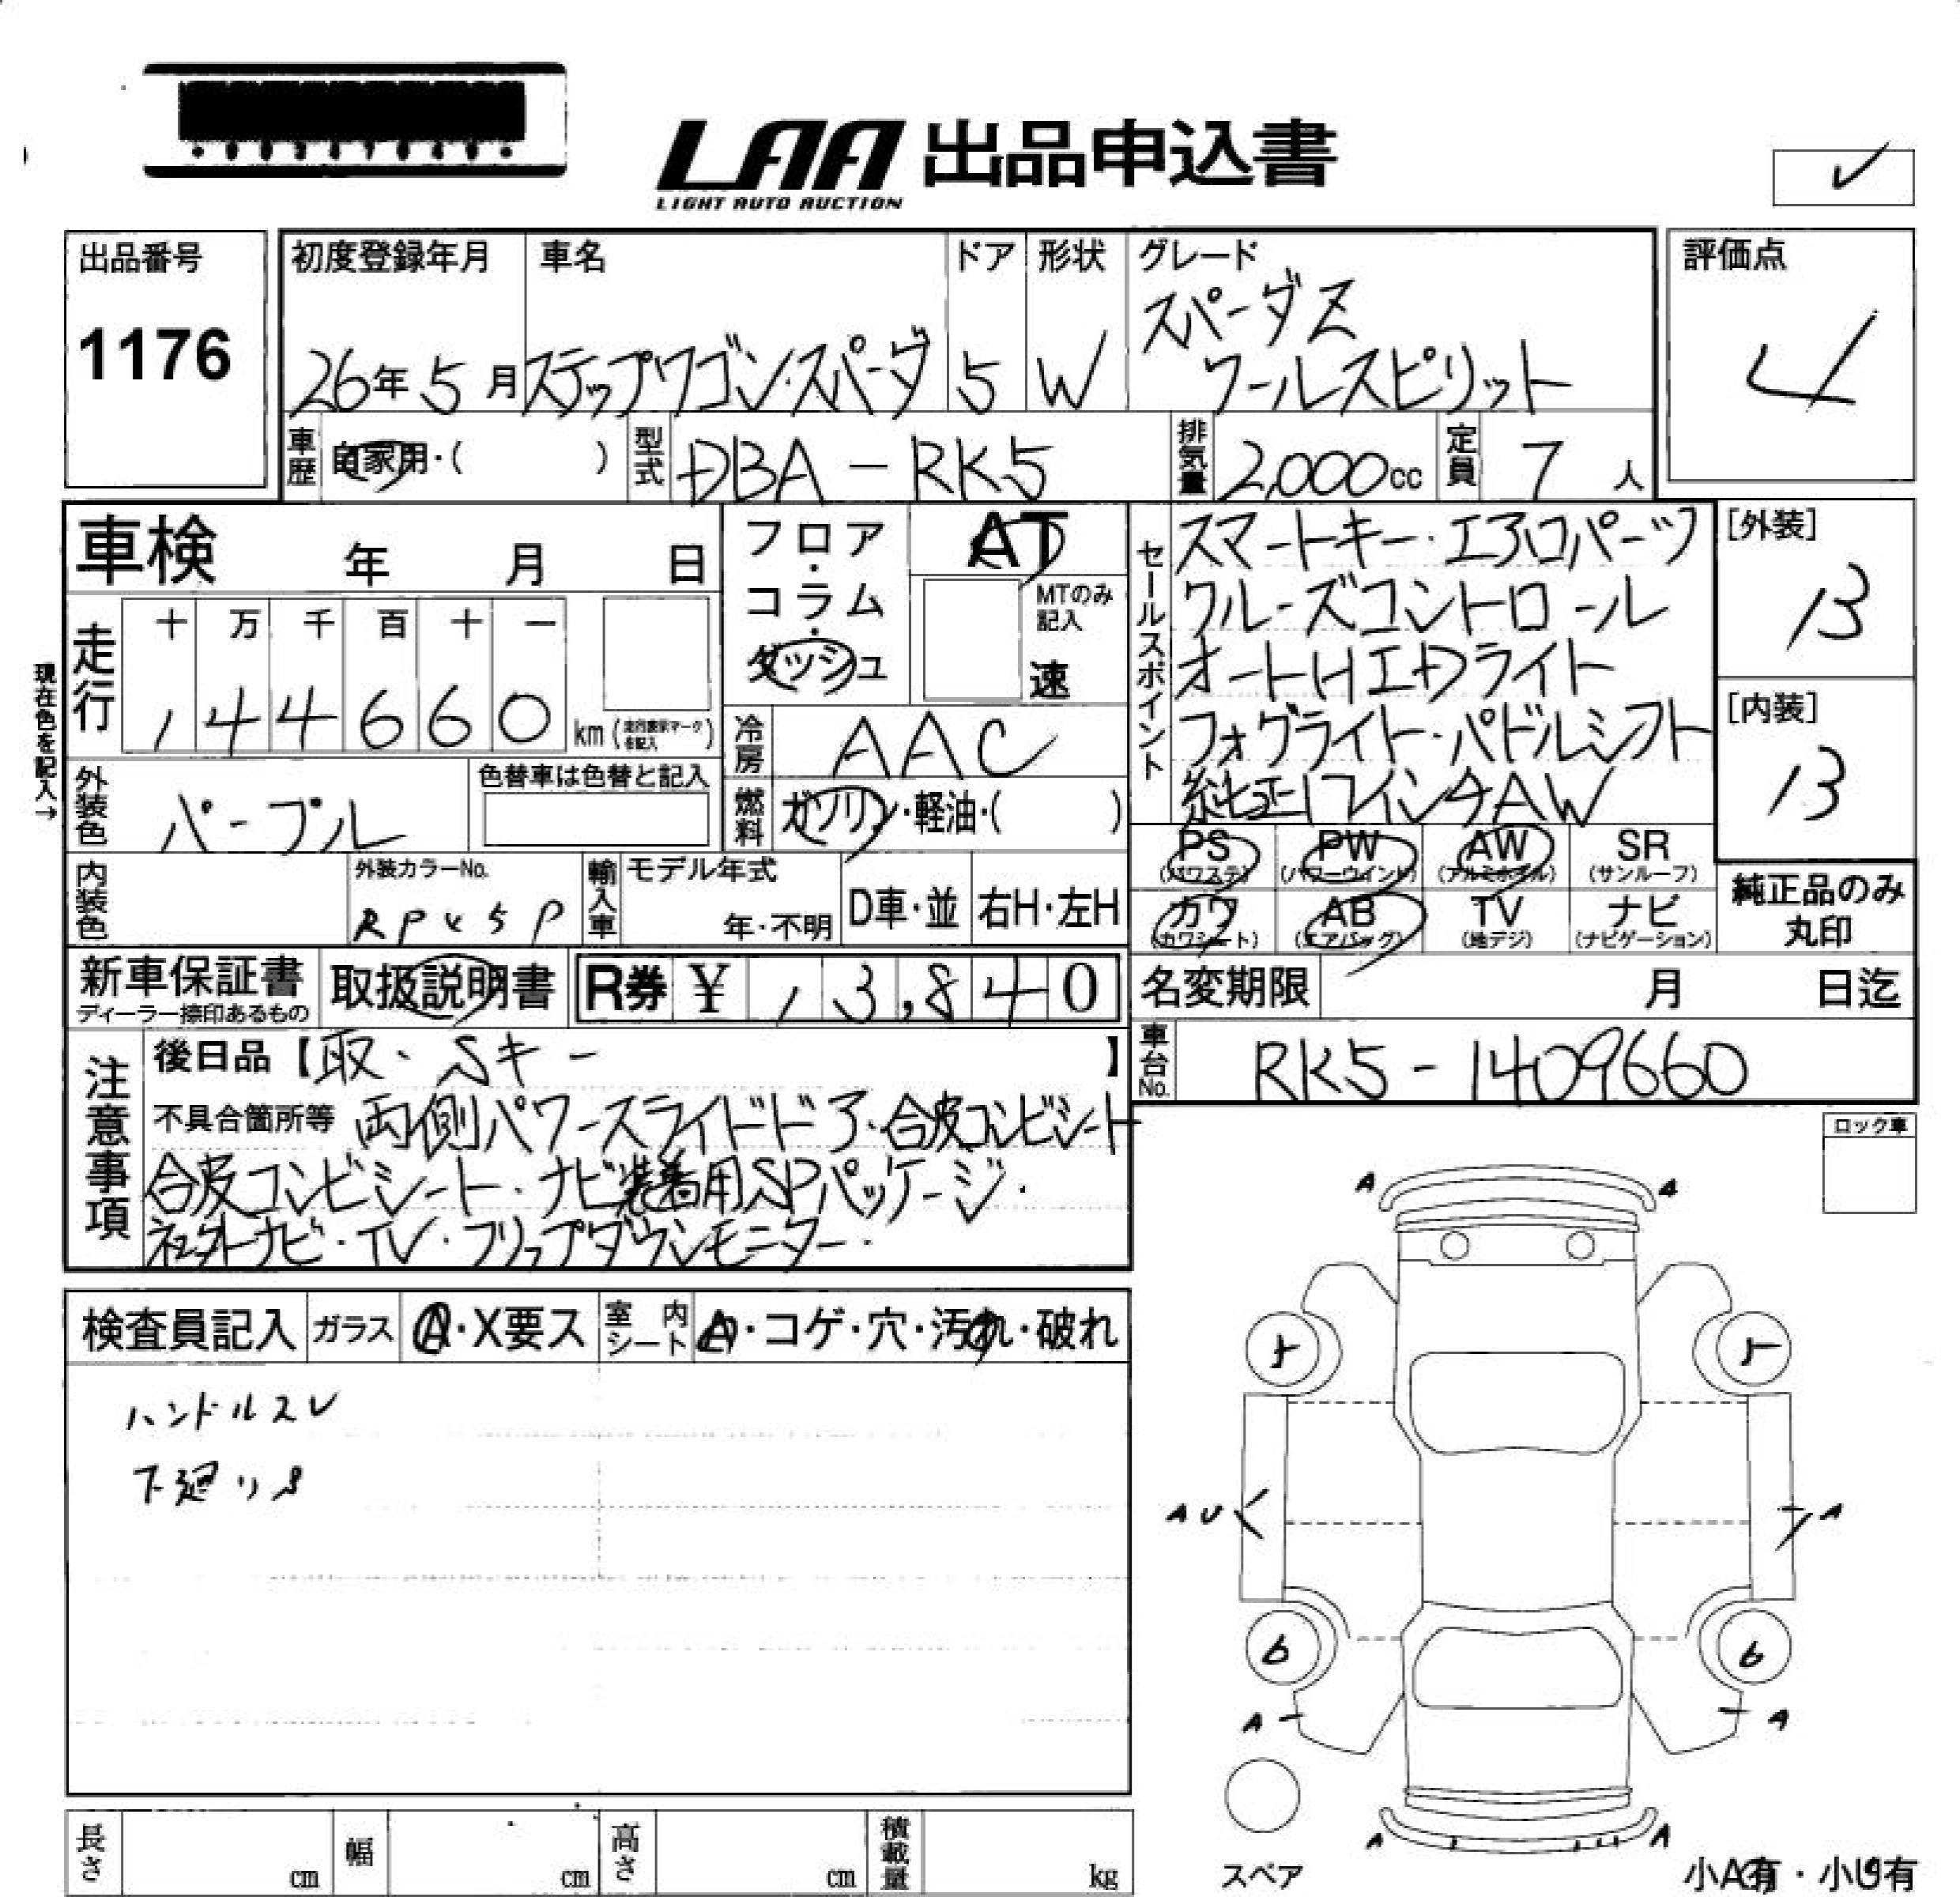 LAA 出品申込書
LIGHT AUTO AUCTION
出品番号
1176
初度登録年月 車名 ドア 形状 グレード
スパーダZ
26年5月 ステップワゴン・スパーダ 5 W クールスピリット
評価点
4
車歴 自家用・( ) 型式 DBA-RK5 排気量 2,000cc 定員 7人
車検 年 月 日
フロア・コラム・ダッシュ
AT
MTのみ記入
速
セールスポイント
スマートキー・エアロパーツ
クルーズコントロール
オートHIDライト
フォグライト・パドルシフト
純正17インチAW
[外装]
B
[内装]
B
現在色を記入→
走行 十 万 千 百 十 一
144660 km (走行表示マークを記入)
冷房 AAC
外装色 パープル
色替車は色替と記入
燃料 ガソリン・軽油・( )
PS (パワステ) PW (パワーウインド) AW (アルミホイル) SR (サンルーフ)
カワ (カワシート) AB (エアバッグ) TV (地デジ) ナビ (ナビゲーション)
純正品のみ丸印
内装色 外装カラーNo. 輸入車 モデル年式 年・不明 D車・並 右H・左H
新車保証書 ディーラー捺印あるもの
取扱説明書
R券 ¥ 13,840
名変期限 月 日迄
車台No. RK5-1409660
注意事項
後日品【取・Sキー 】
不具合箇所等 両側パワースライドドア・合皮コンビシート
合皮コンビシート・ナビ装着用SPパッケージ・
社外ナビ・TV・フリップダウンモニター・
ロック車
A A
検査員記入 ガラス A・X要ス 室内シート A・コゲ・穴・汚れ・破れ
ハンドルスレ
下廻りS
5 5
AU A
6 6
A A
A A
スペア
小A有・小U有
長さ cm 幅 cm 高さ cm 積載量 kg